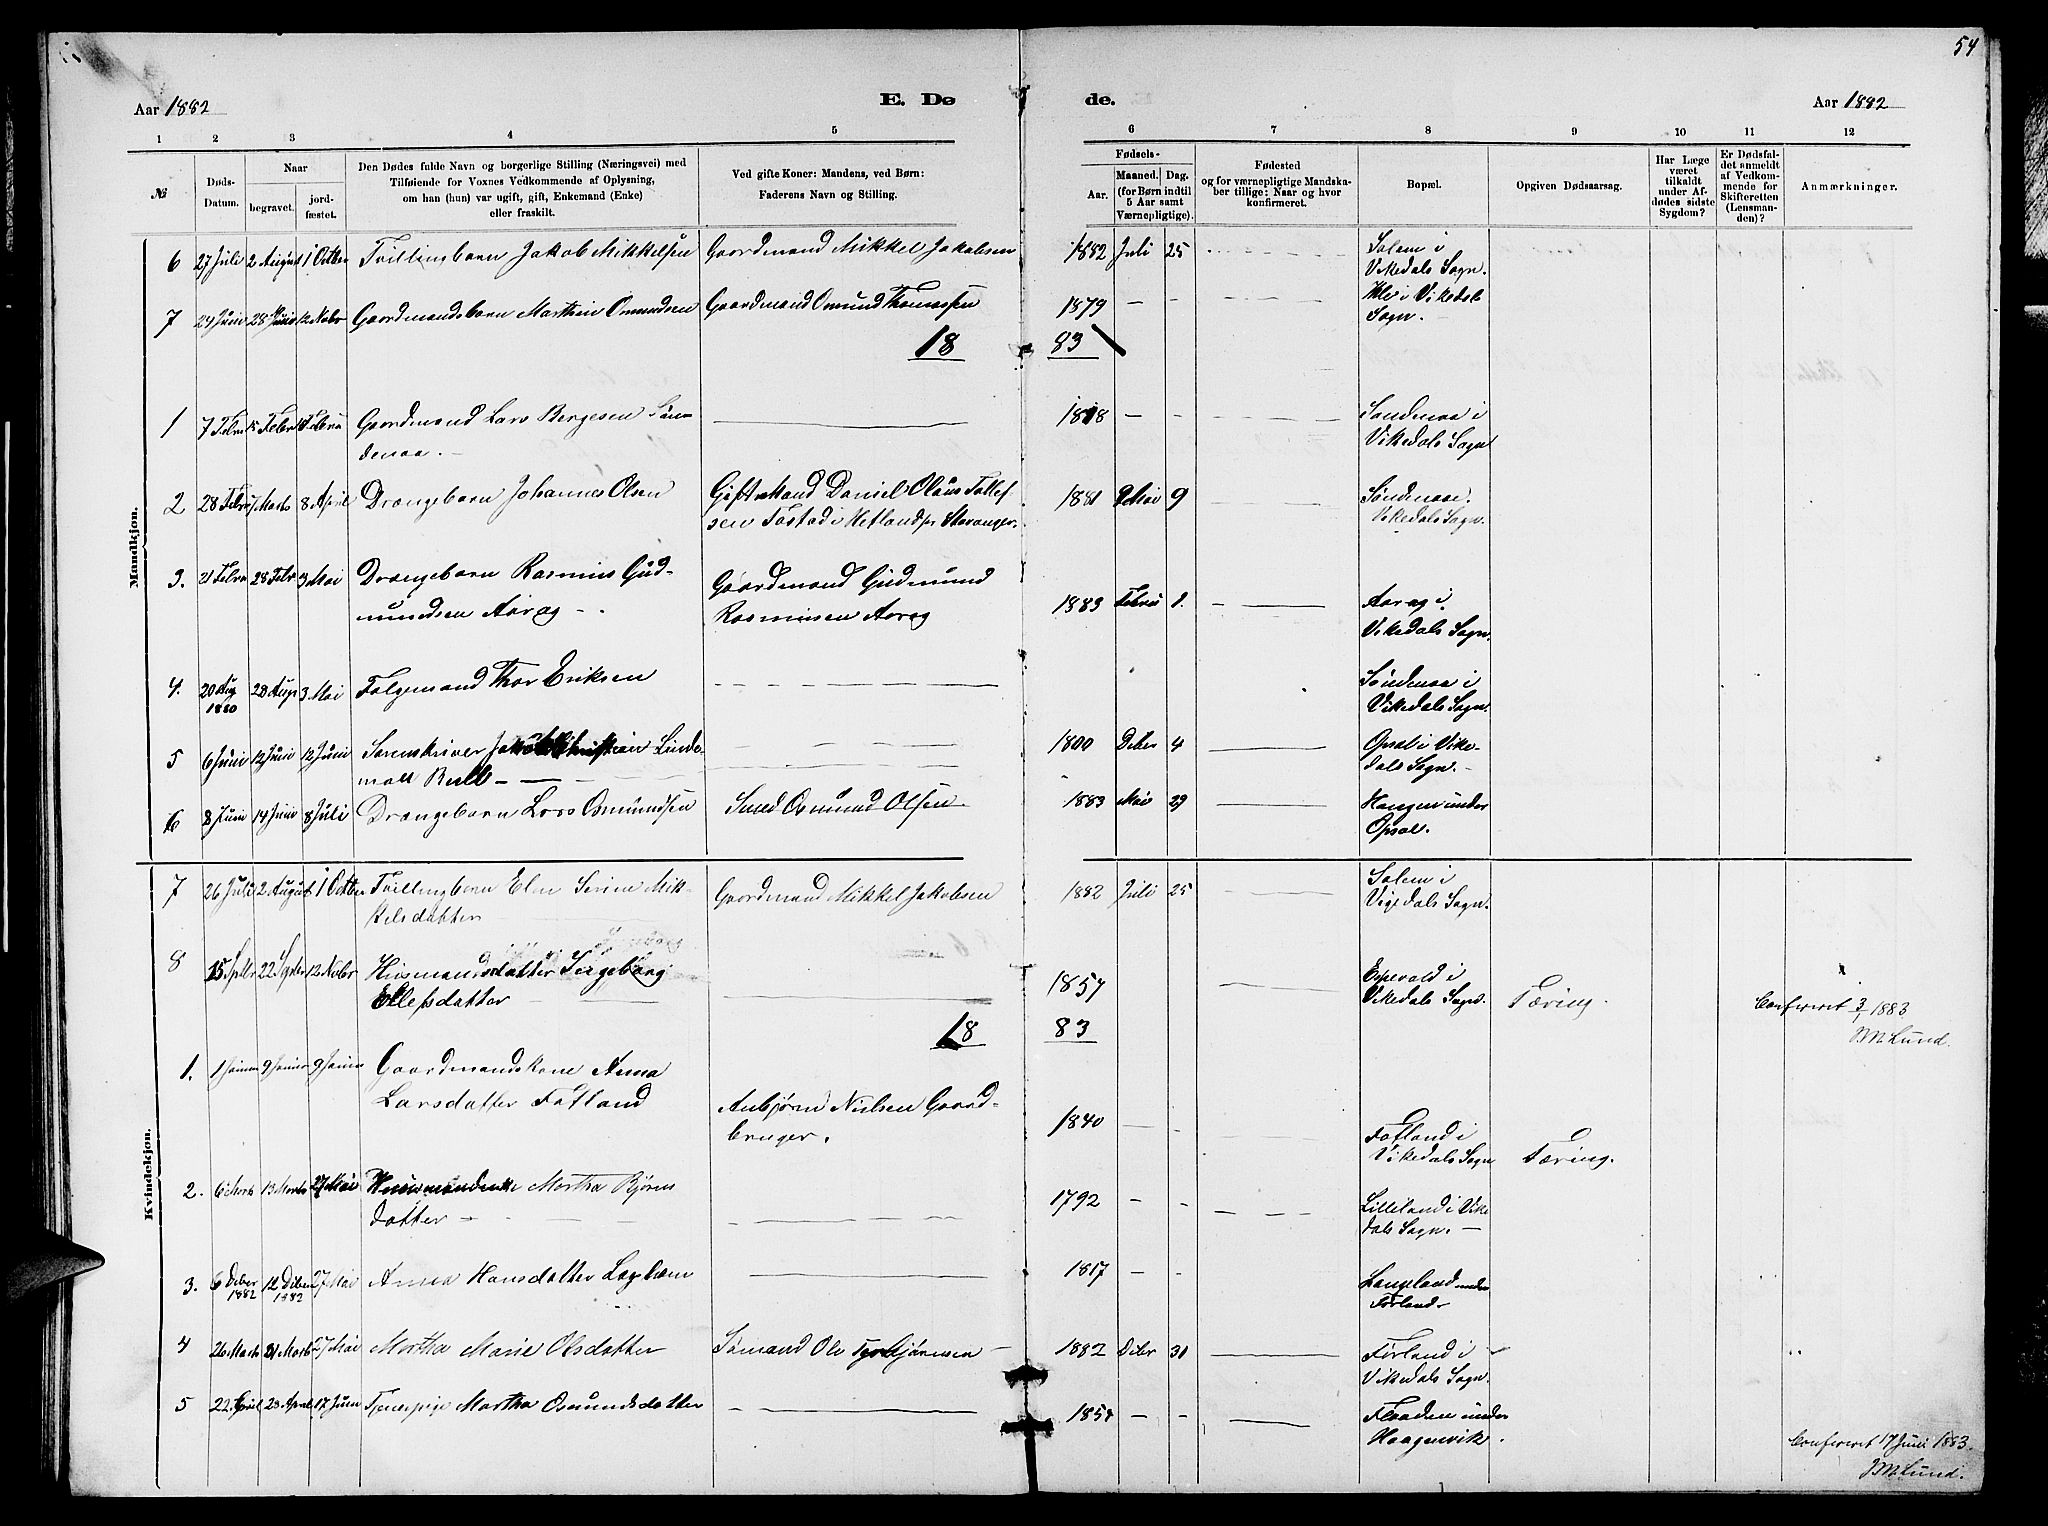 54
Aar 1882
E. Dø
de.
Aar 1882
1 2 3 4 5 6 7 8 9 10 11 12
№
Døds-
Datum.
Naar
begravet.
jord-
fæstet.
Den Dødes fulde Navn og borgerlige Stilling (Næringsvei) med
Tilføiende for Voxnes Vedkommende af Oplysning,
om han (hun) var ugift, gift, Enkemand (Enke)
eller fraskilt.
Ved gifte Koner: Mandens, ved Børn:
Faderens Navn og Stilling.
Fødsels-
Aar.
Maaned. Dag.
(for Børn indtil
5 Aar samt
Værnepligtige).
Fødested
og for værnepligtige Mandska-
ber tillige: Naar og hvor
konfirmeret.
Bopæl.
Opgiven Dødsaarsag.
Har Læge
været
tilkaldt
under Af-
dødes sidste
Sygdom?
Er Dødsfal-
det anmeldt
af Vedkom-
mende for
Skifteretten
(Lensman-
den)?
Anmærkninger.
Mandkjøn.
6 27 Juli 2 August 1 Octber Tvillingbarn Jakob Mikkelsen Gaardmand Mikkel Jakobsen 1882 Juli 25 Salem i
Vikedals Sogn.
7 24 Juni 28 Juni 12 Nobr Gaardmandsbarn Marthin Osmundsen Gaardmand Osmund Thomassen 1879 – – i Vikedals
Sogn.
18 83
1 7 Febr 15 Febr 18 Febru Gaardmand Lars Bergesen Søn-
denaa. 1818 – – Søndenaa i
Vikedals Sogn
2 28 Febr 7 Marts 8 April Drengebarn Johannes Olsen Gift Mand Daniel Olaus Tollef
sen Tastad i Hetland pr Stavanger. 1881 Mai 9 Søndenaa.
Vikedals Sogn.
3. 21 Febru 28 Febr 3 Mai Drengebarn Rasmus Gud-
mundsen Aarag Gaardmand Gudmund
Rasmusen Aarag 1883 Febru 1. Aarag i
Vikedals Sogn.
4. 20 Aug
1880 28 Aug 3 Mai Følgemand Thor Eriksen Søndenaa i
Vikedals Sogn.
5 6 Juni 12 Juni 12 Juni Sorenskriver Jakob Christian Linde-
man Bull – 1800 Dcber 4 Opsal i Vike-
dals Sogn.
6 8 Juni 14 Juni 8 Juli Drengebarn Lars Osmundsen Smed Osmund Olsen 1883 Mai 29 Haugen under
Opsal.
Kvindekjøn.
7 26 Juli 2 August 1 Octber Tvillingbarn Elen Serine Mik-
kelsdatter Gaardmand Mikkel Jakobsen 1882 Juli 25 Salem i
Vigedals Sogn.
8 15 Sptbr 22 Sptbr 12 Nobr Husmandsdatter Ingeborg
Ellefsdatter 1857 Espevold i
Vikedals Sogn. Tæring.
Confereret 3/1 1883
Lund.
18 83
1. 1 Januar 9 Januar 9 Januar Gaardmandskone Anna
Larsdatter Fatland Anbjørn Nielsen Gaard-
bruger. 1840 – – Fatland i
Vikedals Sogn Tæring.
2. 6 Marts 13 Marts 27 Mai Husmandenke Martha Bjørns
datter 1792 – – Lilleland i Vike
dals Sogn. –
3. 6 Dcber
1882 12 Dcber
1882 27 Mai Anna Hansdatter 1817 – – Langeland under
Førland.
4 26 Marts 31 Marts 27 Mai Martha Marie Olsdatter Sømand Ole Torbjørnsen 1882 Dcbr 31 Førland i
Vikedals Sogn.
5 22 April 23 April 17 Juni Tjenestpige Martha Osmundsdatter 1854 – – Flaaden under
Haagenvik.
Confereret 17 Juni 1883.
Lund.